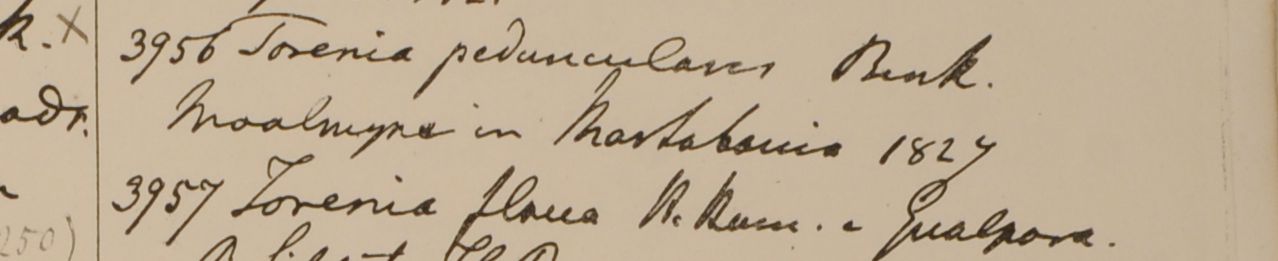 k. X
3956 Torenia peduncularis Benth.
adr.
Moalmyne in Martabania 1827
3957 Torenia flava H. Ham. a Gualpara.
250)